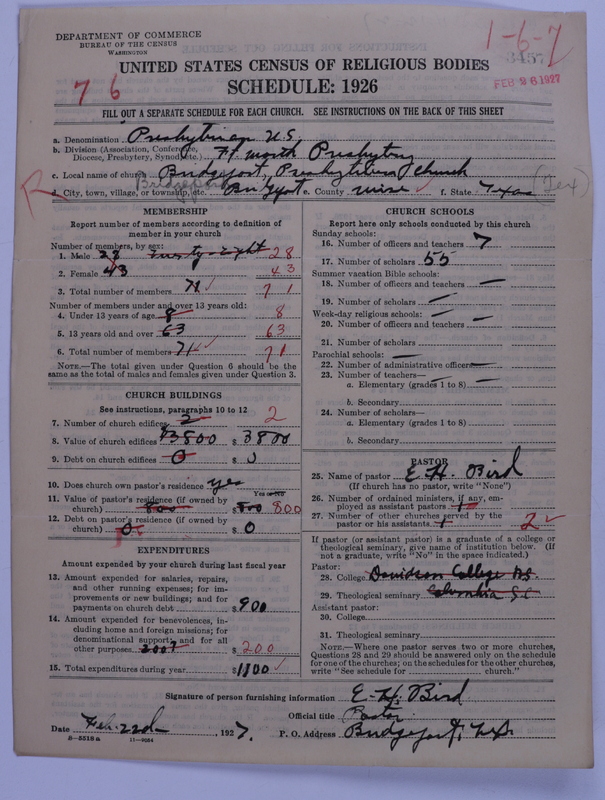 DEPARTMENT OF COMMERCE
BUREAU OF THE CENSUS
WASHINGTON
1-6-7
3457
FEB 26 1927
UNITED STATES CENSUS OF RELIGIOUS BODIES
7 6
SCHEDULE: 1926
FILL OUT A SEPARATE SCHEDULE FOR EACH CHURCH. SEE INSTRUCTIONS ON THE BACK OF THIS SHEET
a. Denomination Presbyterian U.S.
b. Division (Association, Conference,
Diocese, Presbytery, Synod, etc.) Ft worth Presbytery
c. Local name of church Bridgeport, Presbyterian church
R
d. City, town, village, or township, etc. Bridgeport e. County wise f. State Texas (Tex)
MEMBERSHIP
Report number of members according to definition of
member in your church
Number of members, by sex:
1. Male 28 twenty eight 28
2. Female 43 43
3. Total number of members 71 71
Number of members under and over 13 years old:
4. Under 13 years of age 8 8
5. 13 years old and over 63 63
6. Total number of members 71 71
NOTE.—The total given under Question 6 should be
same as the total of males and females given under Question 3.
CHURCH BUILDINGS
See instructions, paragraphs 10 to 12
7. Number of church edifices 2 2
8. Value of church edifices $3800 $ 3800
9. Debt on church edifices 0 $ 0
10. Does church own pastor's residence? yes
Yes or No
11. Value of pastor's residence (if owned by
church) 800 $ 800 800
12. Debt on pastor's residence (if owned by
church) 0 $ 0
EXPENDITURES
Amount expended by your church during last fiscal year
13. Amount expended for salaries, repairs,
and other running expenses; for im-
provements or new buildings; and for
payments on church debt $ 900
14. Amount expended for benevolences, in-
cluding home and foreign missions; for
denominational support; and for all
other purposes 200 $ 200
15. Total expenditures during year $ 1100
CHURCH SCHOOLS
Report here only schools conducted by this church
Sunday schools:
16. Number of officers and teachers 7
17. Number of scholars 55
Summer vacation Bible schools:
18. Number of officers and teachers —
19. Number of scholars —
Week-day religious schools: —
20. Number of officers and teachers —
21. Number of scholars
Parochial schools: —
22. Number of administrative officers —
23. Number of teachers—
a. Elementary (grades 1 to 8) —
b. Secondary
24. Number of scholars—
a. Elementary (grades 1 to 8) —
b. Secondary
PASTOR
25. Name of pastor E. H. Bird
(If church has no pastor, write "None")
26. Number of ordained ministers, if any, em-
ployed as assistant pastors 1
27. Number of other churches served by the
pastor or his assistants 1 2
If pastor (or assistant pastor) is a graduate of a college or
theological seminary, give name of institution below. (If
not a graduate, write "No" in the space indicated.)
Pastor:
28. College Davidson College N.C.
29. Theological seminary Columbia S.C.
Assistant pastor:
30. College
31. Theological seminary
NOTE.—Where one pastor serves two or more churches,
Questions 28 and 29 should be answered only on the schedule
for one of the churches; on the schedules for the other churches,
write "See schedule for church."
Signature of person furnishing information E. H. Bird
Official title Pastor
Date Feb. 22d, 1927. P. O. Address Bridgeport, Tex.
8—5518a 11—9084